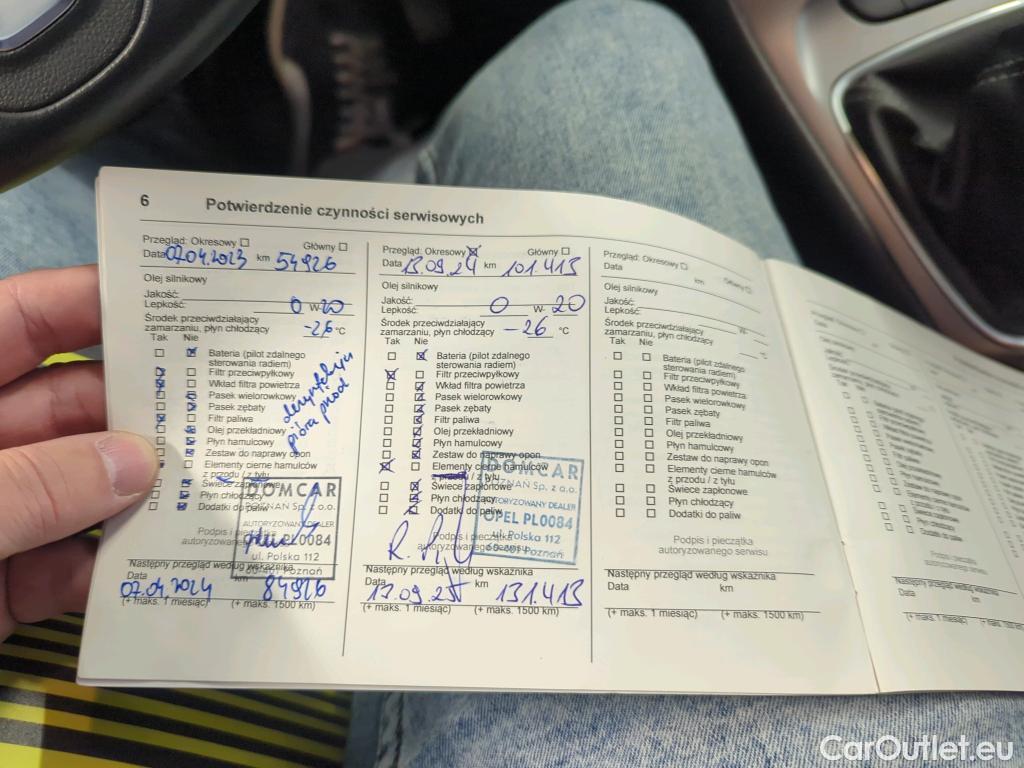 6 Potwierdzenie czynności serwisowych
Przegląd: Okresowy Główny
Data 07.04.2023 km 54926
Olej silnikowy
Jakość:
Lepkość: 0 W- 20
Środek przeciwdziałający
zamarzaniu, płyn chłodzący -26 °C
Tak Nie
Bateria (pilot zdalnego
sterowania radiem)
Filtr przeciwpyłkowy
Wkład filtra powietrza
Pasek wielorowkowy
Pasek zębaty
Filtr paliwa
Olej przekładniowy
Płyn hamulcowy
Zestaw do naprawy opon
Elementy cierne hamulców
z przodu / z tyłu
Świece zapłonowe
Płyn chłodzący
Dodatki do paliw
pióra przód
ROMCAR
POZNAŃ Sp. z o.o.
AUTORYZOWANY DEALER
OPEL PL0084
ul. Polska 112
60-401 Poznań
Podpis i pieczątka
autoryzowanego serwisu
Następny przegląd według wskaźnika
Data km
07.04.2024 84926
(+ maks. 1 miesiąc) (+ maks. 1500 km)
Przegląd: Okresowy Główny
Data 13.09.24 km 101.413
Olej silnikowy
Jakość:
Lepkość: 0 W- 20
Środek przeciwdziałający
zamarzaniu, płyn chłodzący -26 °C
Tak Nie
Bateria (pilot zdalnego
sterowania radiem)
Filtr przeciwpyłkowy
Wkład filtra powietrza
Pasek wielorowkowy
Pasek zębaty
Filtr paliwa
Olej przekładniowy
Płyn hamulcowy
Zestaw do naprawy opon
Elementy cierne hamulców
z przodu / z tyłu
Świece zapłonowe
Płyn chłodzący
Dodatki do paliw
ROMCAR
POZNAŃ Sp. z o.o.
AUTORYZOWANY DEALER
OPEL PL0084
ul. Polska 112
60-401 Poznań
Podpis i pieczątka
autoryzowanego serwisu
Następny przegląd według wskaźnika
Data km
13.09.25 131.413
(+ maks. 1 miesiąc) (+ maks. 1500 km)
Przegląd: Okresowy Główny
Data km
Olej silnikowy
Jakość:
Lepkość: W-
Środek przeciwdziałający
zamarzaniu, płyn chłodzący °C
Tak Nie
Bateria (pilot zdalnego
sterowania radiem)
Filtr przeciwpyłkowy
Wkład filtra powietrza
Pasek wielorowkowy
Pasek zębaty
Filtr paliwa
Olej przekładniowy
Płyn hamulcowy
Zestaw do naprawy opon
Elementy cierne hamulców
z przodu / z tyłu
Świece zapłonowe
Płyn chłodzący
Dodatki do paliw
Podpis i pieczątka
autoryzowanego serwisu
Następny przegląd według wskaźnika
Data km
(+ maks. 1 miesiąc) (+ maks. 1500 km)
CarOutlet.eu